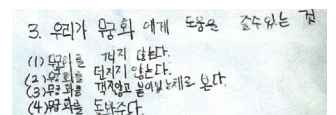 3. 우리가 무궁화에게 도움을 줄수있는 점
(1) 무궁화를 꺾지 않는다.
(2) 무궁화를 던지지 않는다.
(3) 무궁화를 꺾지않고 붙어있는채로 본다.
(4) 무궁화를 돌봐준다.